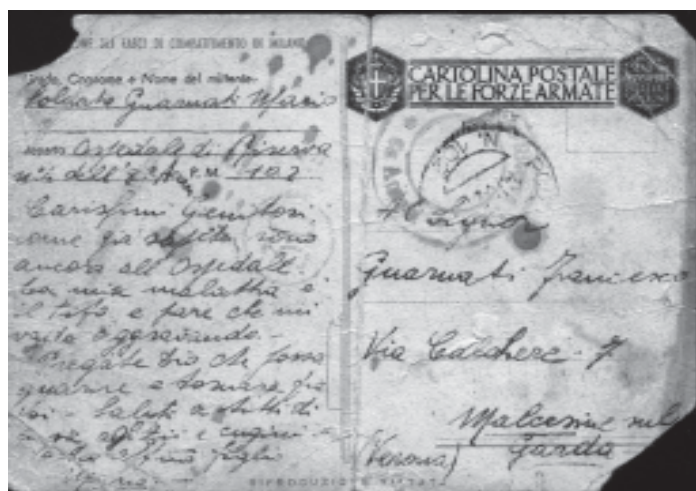 ONE DEI FASCI DI COMBATTIMENTO DI MILANO
Grado, Cognome e Nome del mittente
Soldato Guarnati Mario
Ospedale di Riserva
P. M. 102
Carissimi Genitori
come già sapete sono
ancora all'Ospedale
la mia malattia è
il tifo, e pare che mi
vada aggravando.-
Pregate Dio che possa
guarire e tornare fra
voi - Saluti a tutti di
zii e cugini
figlio
CARTOLINA POSTALE
PER LE FORZE ARMATE
Al Signor
Guarnati Francesco
Via Calchere - 7
Malcesine sul
Garda
(Verona)
RIPRODUZIONE VIETATA